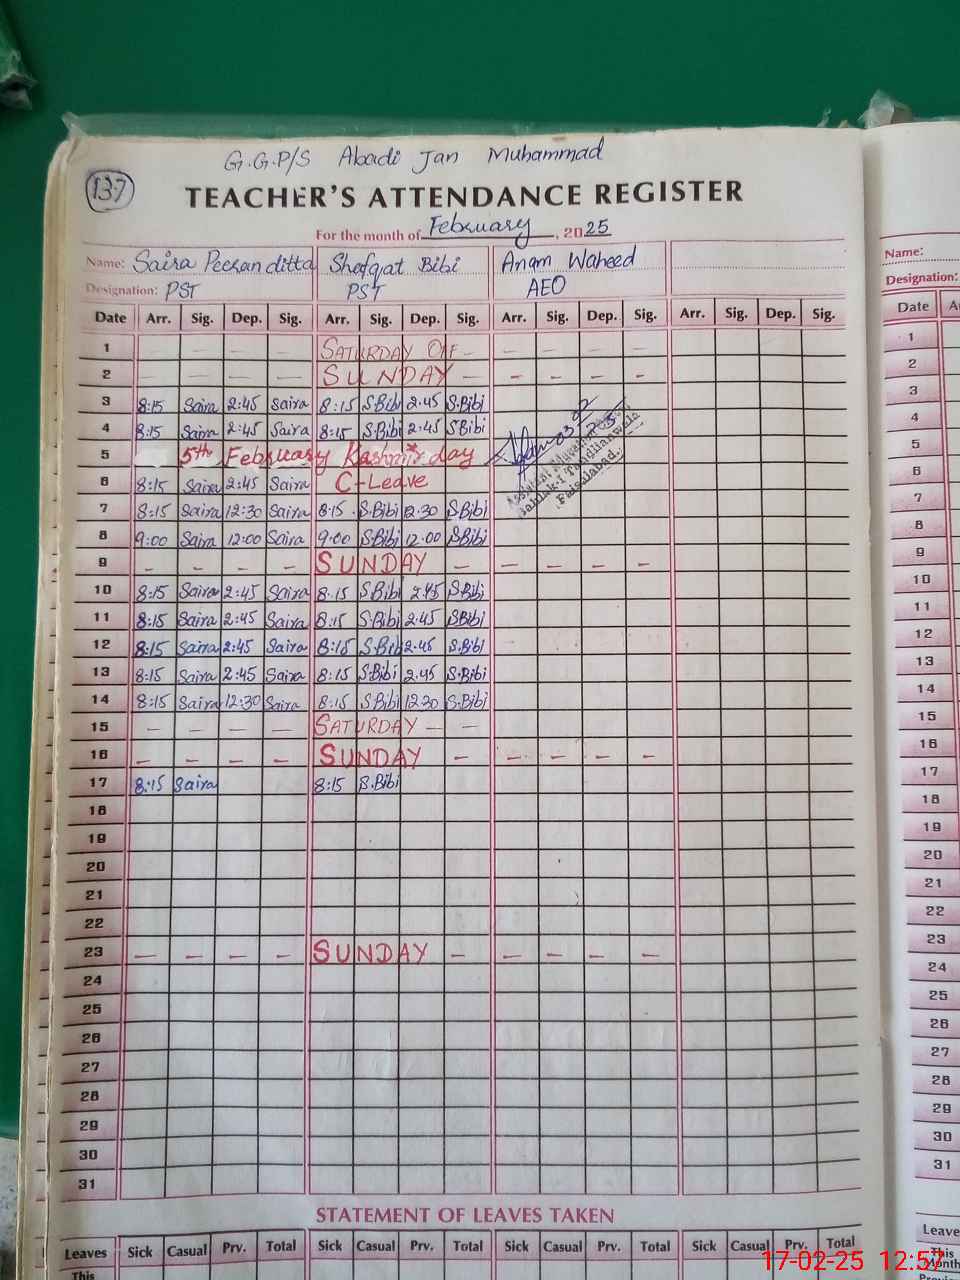 G.G.P/S Abadi Jan Muhammad
137
TEACHER'S ATTENDANCE REGISTER
For the month of February, 2025
Name: Saira Peeran ditta Shafqat Bibi Anam Waheed
Designation: PST PST AEO
Date Arr. Sig. Dep. Sig. Arr. Sig. Dep. Sig. Arr. Sig. Dep. Sig. Arr. Sig. Dep. Sig.
1 — — — — SATURDAY Off — — — — —
2 — — — — SUNDAY — — — — —
3 8:15 Saira 2:45 Saira 8:15 S.Bibi 2:45 S.Bibi
4 8:15 Saira 2:45 Saira 8:15 S.Bibi 2:45 S.Bibi
5 5th February Kashmir day
6 8:15 Saira 2:45 Saira C-Leave
7 8:15 Saira 12:30 Saira 8:15 S.Bibi 12:30 S.Bibi
8 9:00 Saira 12:00 Saira 9:00 S.Bibi 12:00 S.Bibi
9 — — — — SUNDAY — — — — —
10 8:15 Saira 2:45 Saira 8:15 S.Bibi 2:45 S.Bibi
11 8:15 Saira 2:45 Saira 8:15 S.Bibi 2:45 S.Bibi
12 8:15 Saira 2:45 Saira 8:15 S.Bibi 2:45 S.Bibi
13 8:15 Saira 2:45 Saira 8:15 S.Bibi 2:45 S.Bibi
14 8:15 Saira 12:30 Saira 8:15 S.Bibi 12:30 S.Bibi
15 — — — — SATURDAY — —
16 — — — — SUNDAY — — — — —
17 8:15 Saira 8:15 S.Bibi
18
19
20
21
22
23 — — — — SUNDAY — — — — —
24
25
26
27
28
29
30
31
Assistant
Tandlianwala
Faisalabad.
STATEMENT OF LEAVES TAKEN
Leaves Sick Casual Prv. Total Sick Casual Prv. Total Sick Casual Prv. Total Sick Casual Prv. Total
This
Name:
Designation:
Date
1
2
3
4
5
6
7
8
9
10
11
12
13
14
15
16
17
18
19
20
21
22
23
24
25
26
27
28
29
30
31
Leaves
This
Month
17-02-25 12:57